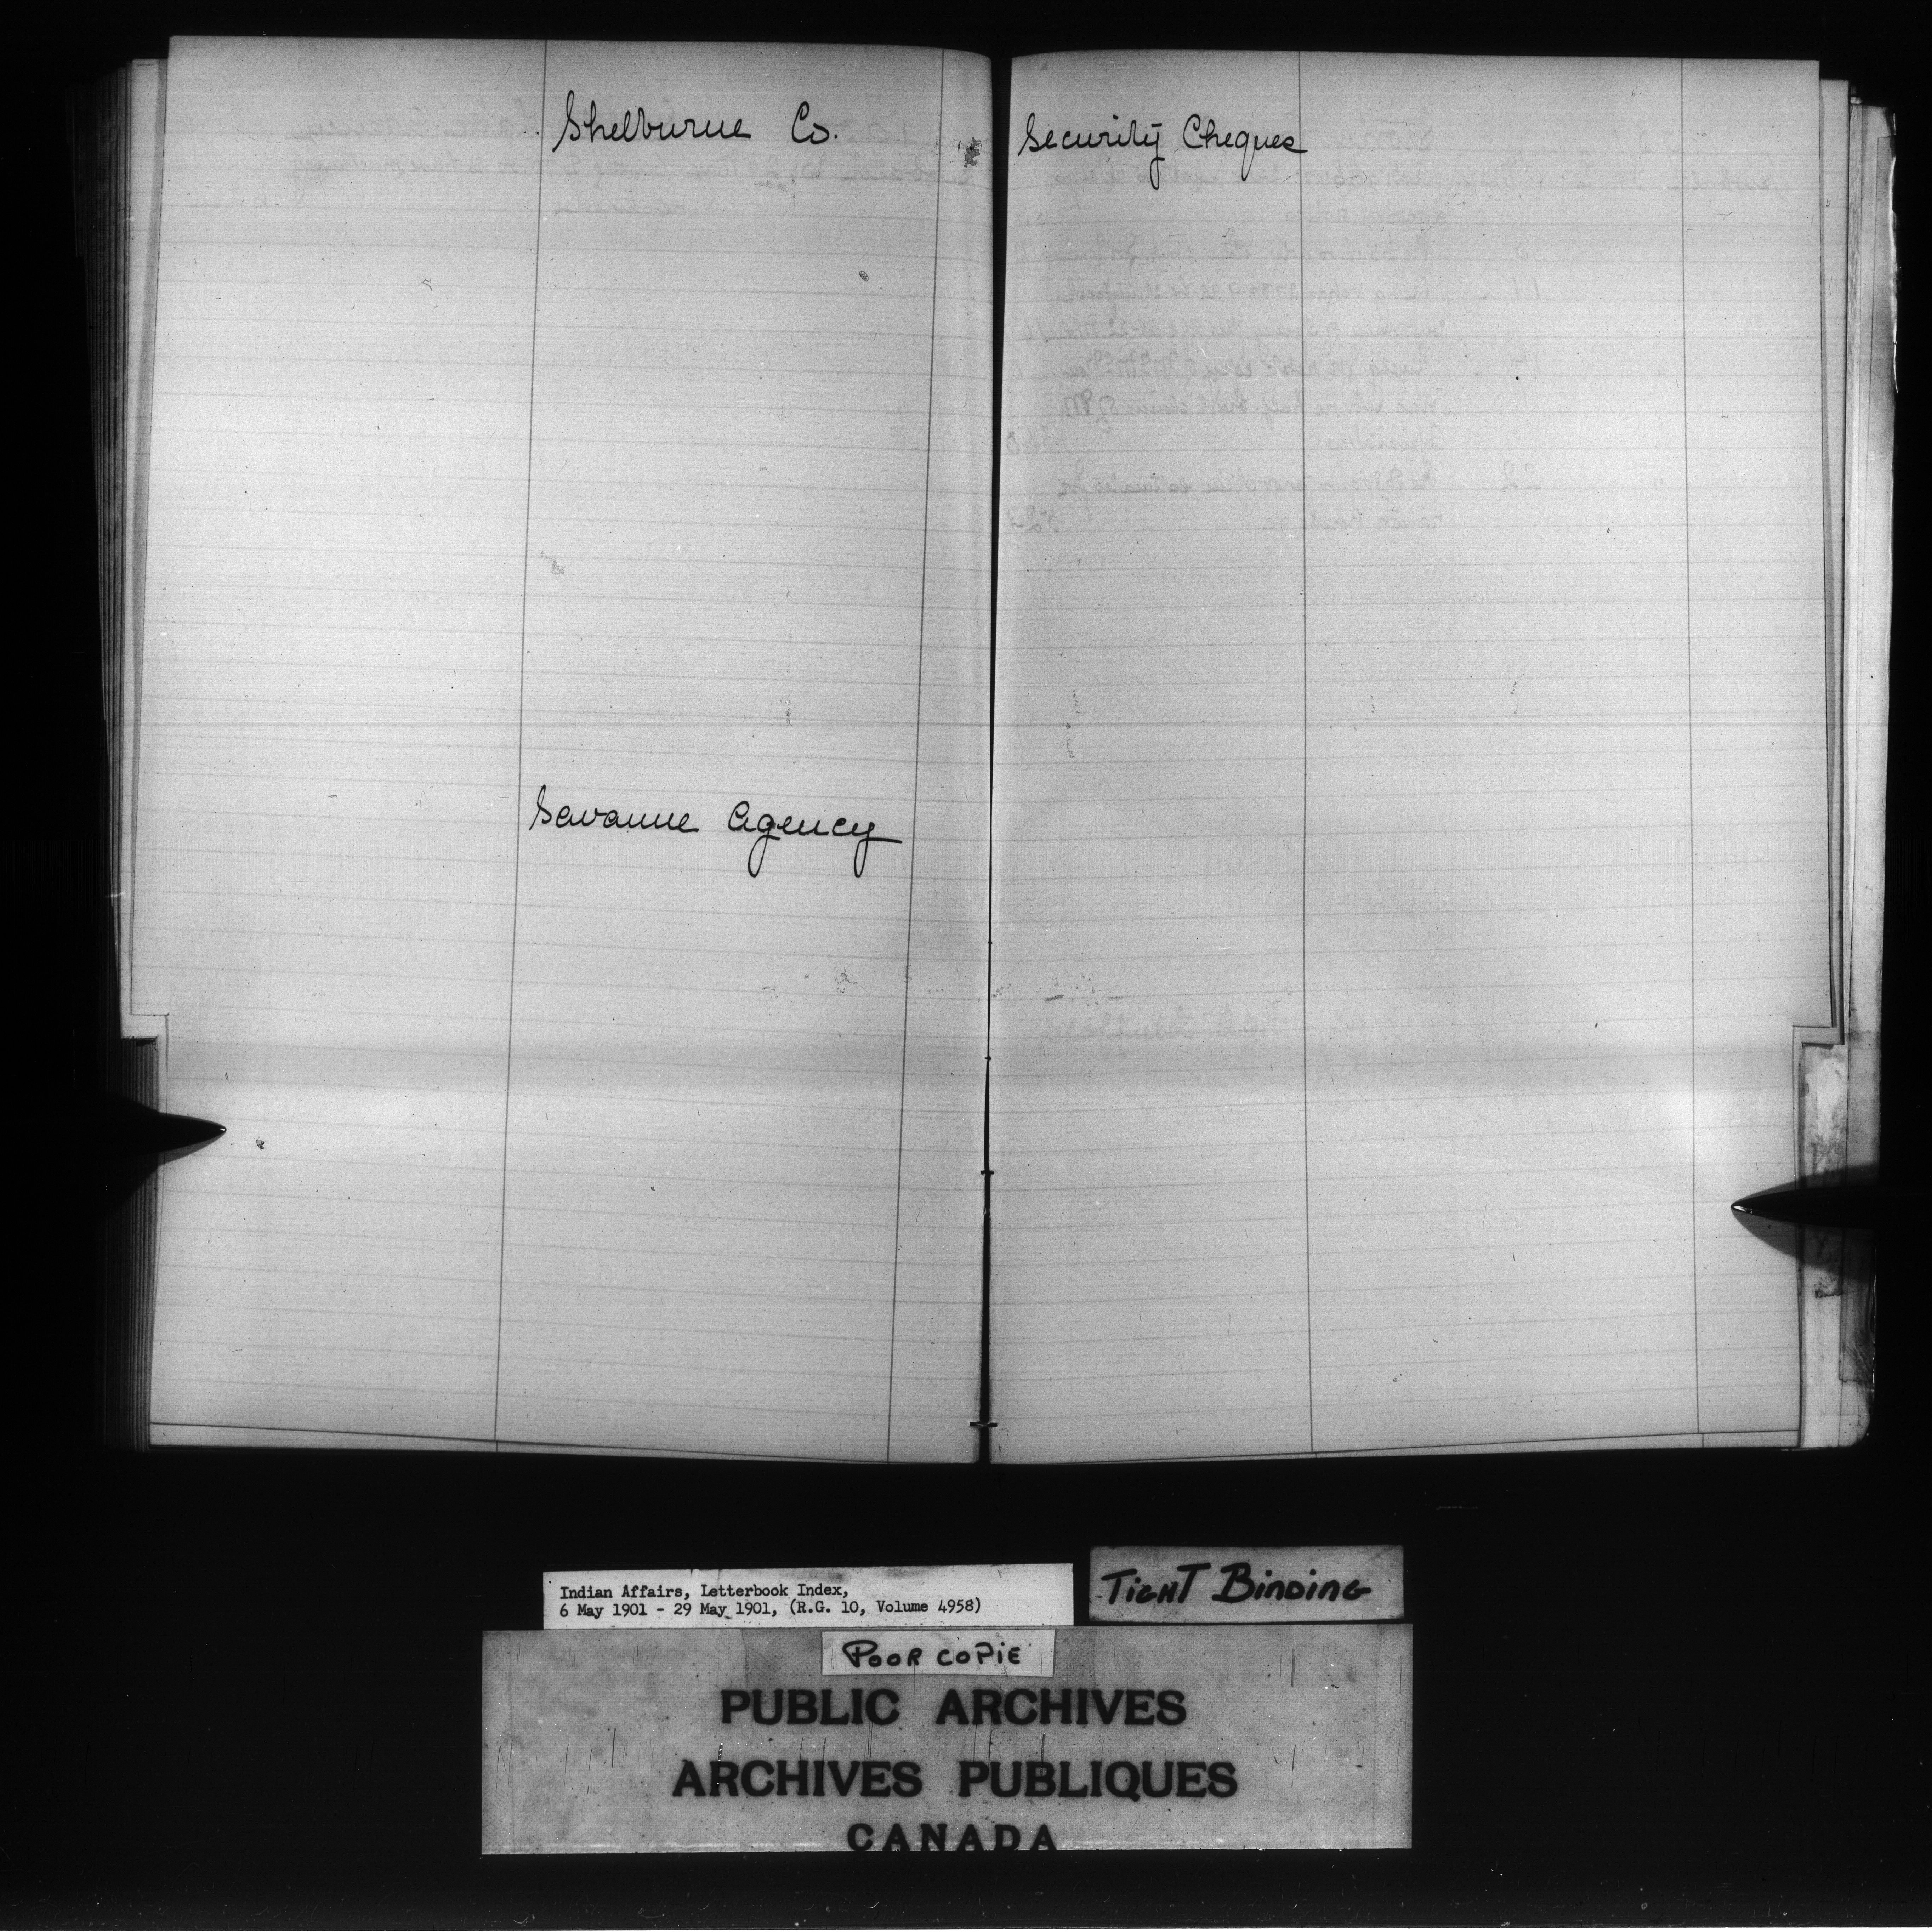 Shelburne Co.
Savanne Agency
Security Cheques
Indian Affairs, Letterbook Index,
6 May 1901 - 29 May 1901, (R.G. 10, Volume 4958)
TIGHT BINDING
POOR COPIE
PUBLIC ARCHIVES
ARCHIVES PUBLIQUES
CANADA